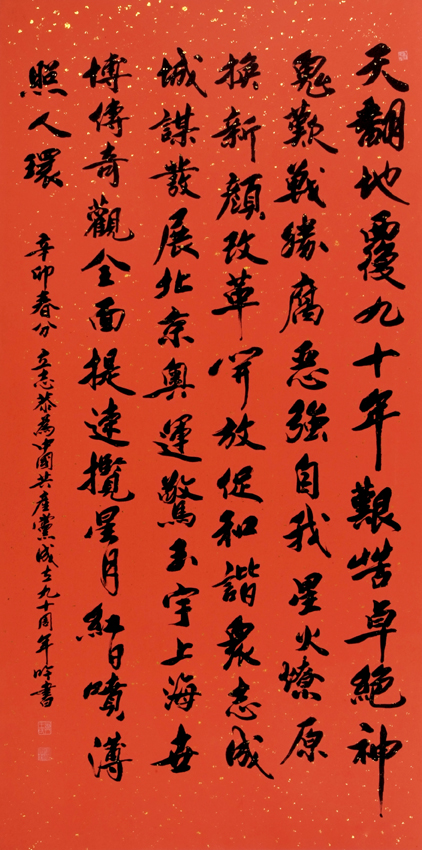 天翻地覆九十年艱苦卓絕神
鬼歎戰勝腐惡強自我星火燎原
換新顏改革開放促和諧眾志成
城謀發展北京奧運驚玉宇上海世
博傳奇觀全面提速攬星月紅日噴薄
照人寰
辛卯春分立志恭為中國共產黨成立九十周年吟書